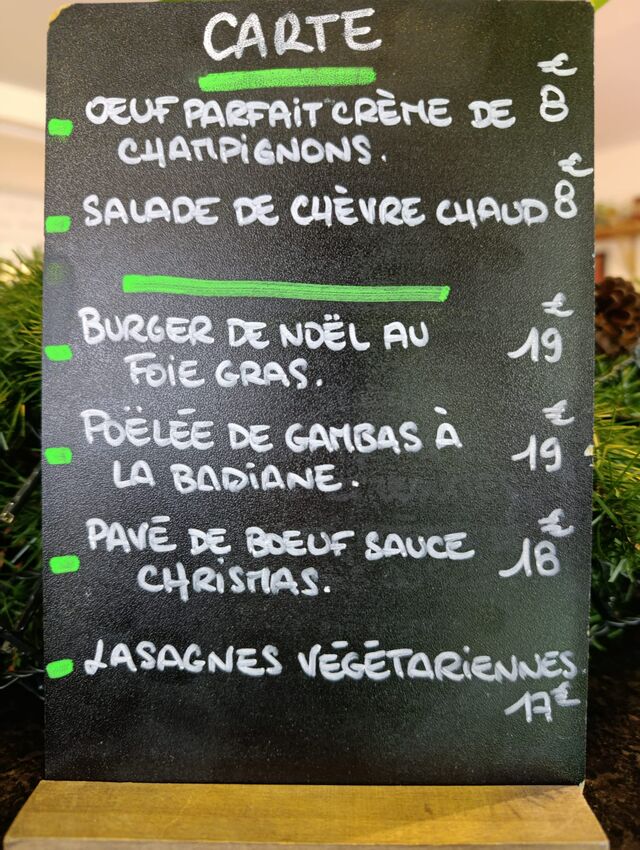 CARTE
ŒUF PARFAIT CRÈME DE 8€
CHAMPIGNONS.
SALADE DE CHÈVRE CHAUD 8€
BURGER DE NOËL AU
FOIE GRAS. 19€
POËLÉE DE GAMBAS À
LA BADIANE. 19€
PAVÉ DE BOEUF SAUCE
CHRISMAS. 18€
LASAGNES VÉGÉTARIENNES
17€